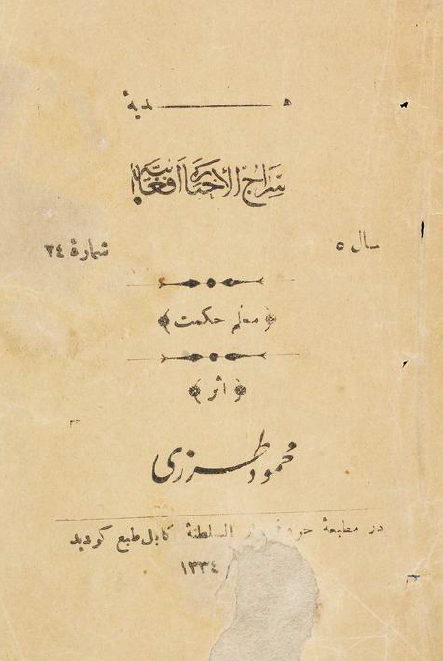 هـــــــــدیهٔ
سراج الاخبار افغانیه
سال ٥
شمارهٔ ٢٤
معلم حکمت
اثر
محمود طرزی
در مطبعهٔ السلطنهٔ کابل طبع گردید
١٣٣٤